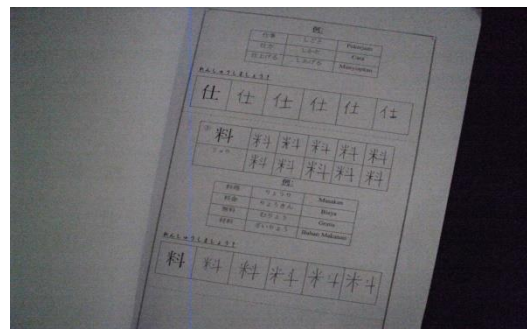 例:
仕事 しごと Pekerjaan
仕方 しかた Cara
仕上げる しあげる
れんしゅうしましょう!
仕 仕 仕 仕 仕 仕
料 料 料 料 料 料
りょう 料 料 料 料 料
例:
料理 りょうり Masakan
料金 りょうきん Biaya
無料 むりょう Gratis
材料 ざいりょう Bahan Makanan
れんしゅうしましょう!
料 料 料 料 料 料